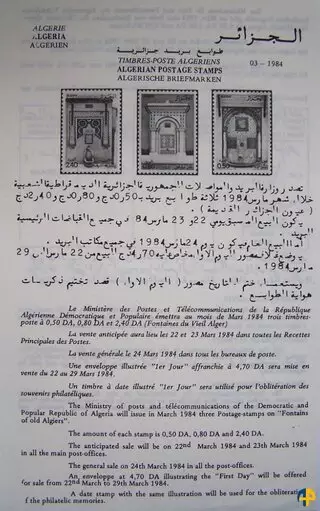 الجزائر
ALGERIE
ALGERIA
ALGERIEN
طوابع بريد جزائرية
TIMBRES-POSTE ALGERIENS
ALGERIAN POSTAGE STAMPS
ALGERISCHE BRIEFMARKEN
03 – 1984
2.40
0.80
0.50
تصدر وزارة البريد والمواصلات الجمهورية الجزائرية الديمقراطية الشعبية
خلال شهر مارس 1984 ثلاثة طوابع بريد بـ 50ر0 دج و 80ر0 دج و 40ر2 دج
(عيون الجزائر القديمة).
يكون البيع المسبق يومي 22 و 23 مارس 84 في جميع القباضات الرئيسية
للبريد.
أما البيع العام فيكون يوم 24 مارس 1984 في جميع مكاتب البريد.
70ر4 دج للبيع من 22 مارس الى 29
مارس 1984.
ختم التاريخ مصور (اليوم الاول) قصد ختم
هواية الطوابع.
Le Ministère des Postes et Télécommunications de la République
Algérienne Démocratique et Populaire émettra au mois de Mars 1984 trois timbres-
poste à 0,50 DA, 0,80 DA et 2,40 DA (Fontaines du Vieil Alger)
La vente anticipée aura lieu les 22 et 23 Mars 1984 dans toutes les Recettes
Principales des Postes.
La vente générale le 24 Mars 1984 dans tous les bureaux de poste.
Une enveloppe illustrée "1er Jour" affranchie à 4,70 DA sera mise en
vente du 22 au 29 Mars 1984.
Un timbre à date illustré "1er Jour" sera utilisé pour l'oblitération des
souvenirs philatéliques.
The Ministry of posts and télécommunications of the Democratic and
Popular Republic of Algeria will issue in March 1984 three Postage-stamps on "Fontains
of old Algiers".
The amount of each stamp is 0,50 DA, 0,80 DA and 2,40 DA.
The anticipated sale will be on 22nd March 1984 and 23th March 1984
in all the main post-offices.
The general sale on 24th March 1984 in all the post-offices.
An enveloppe at 4,70 DA illustrating the "First Day" will be offered
for sale from 22nd March to 29th March 1984.
A date stamp with the same illustration will be used for the obliteration
f the philatelic memories.